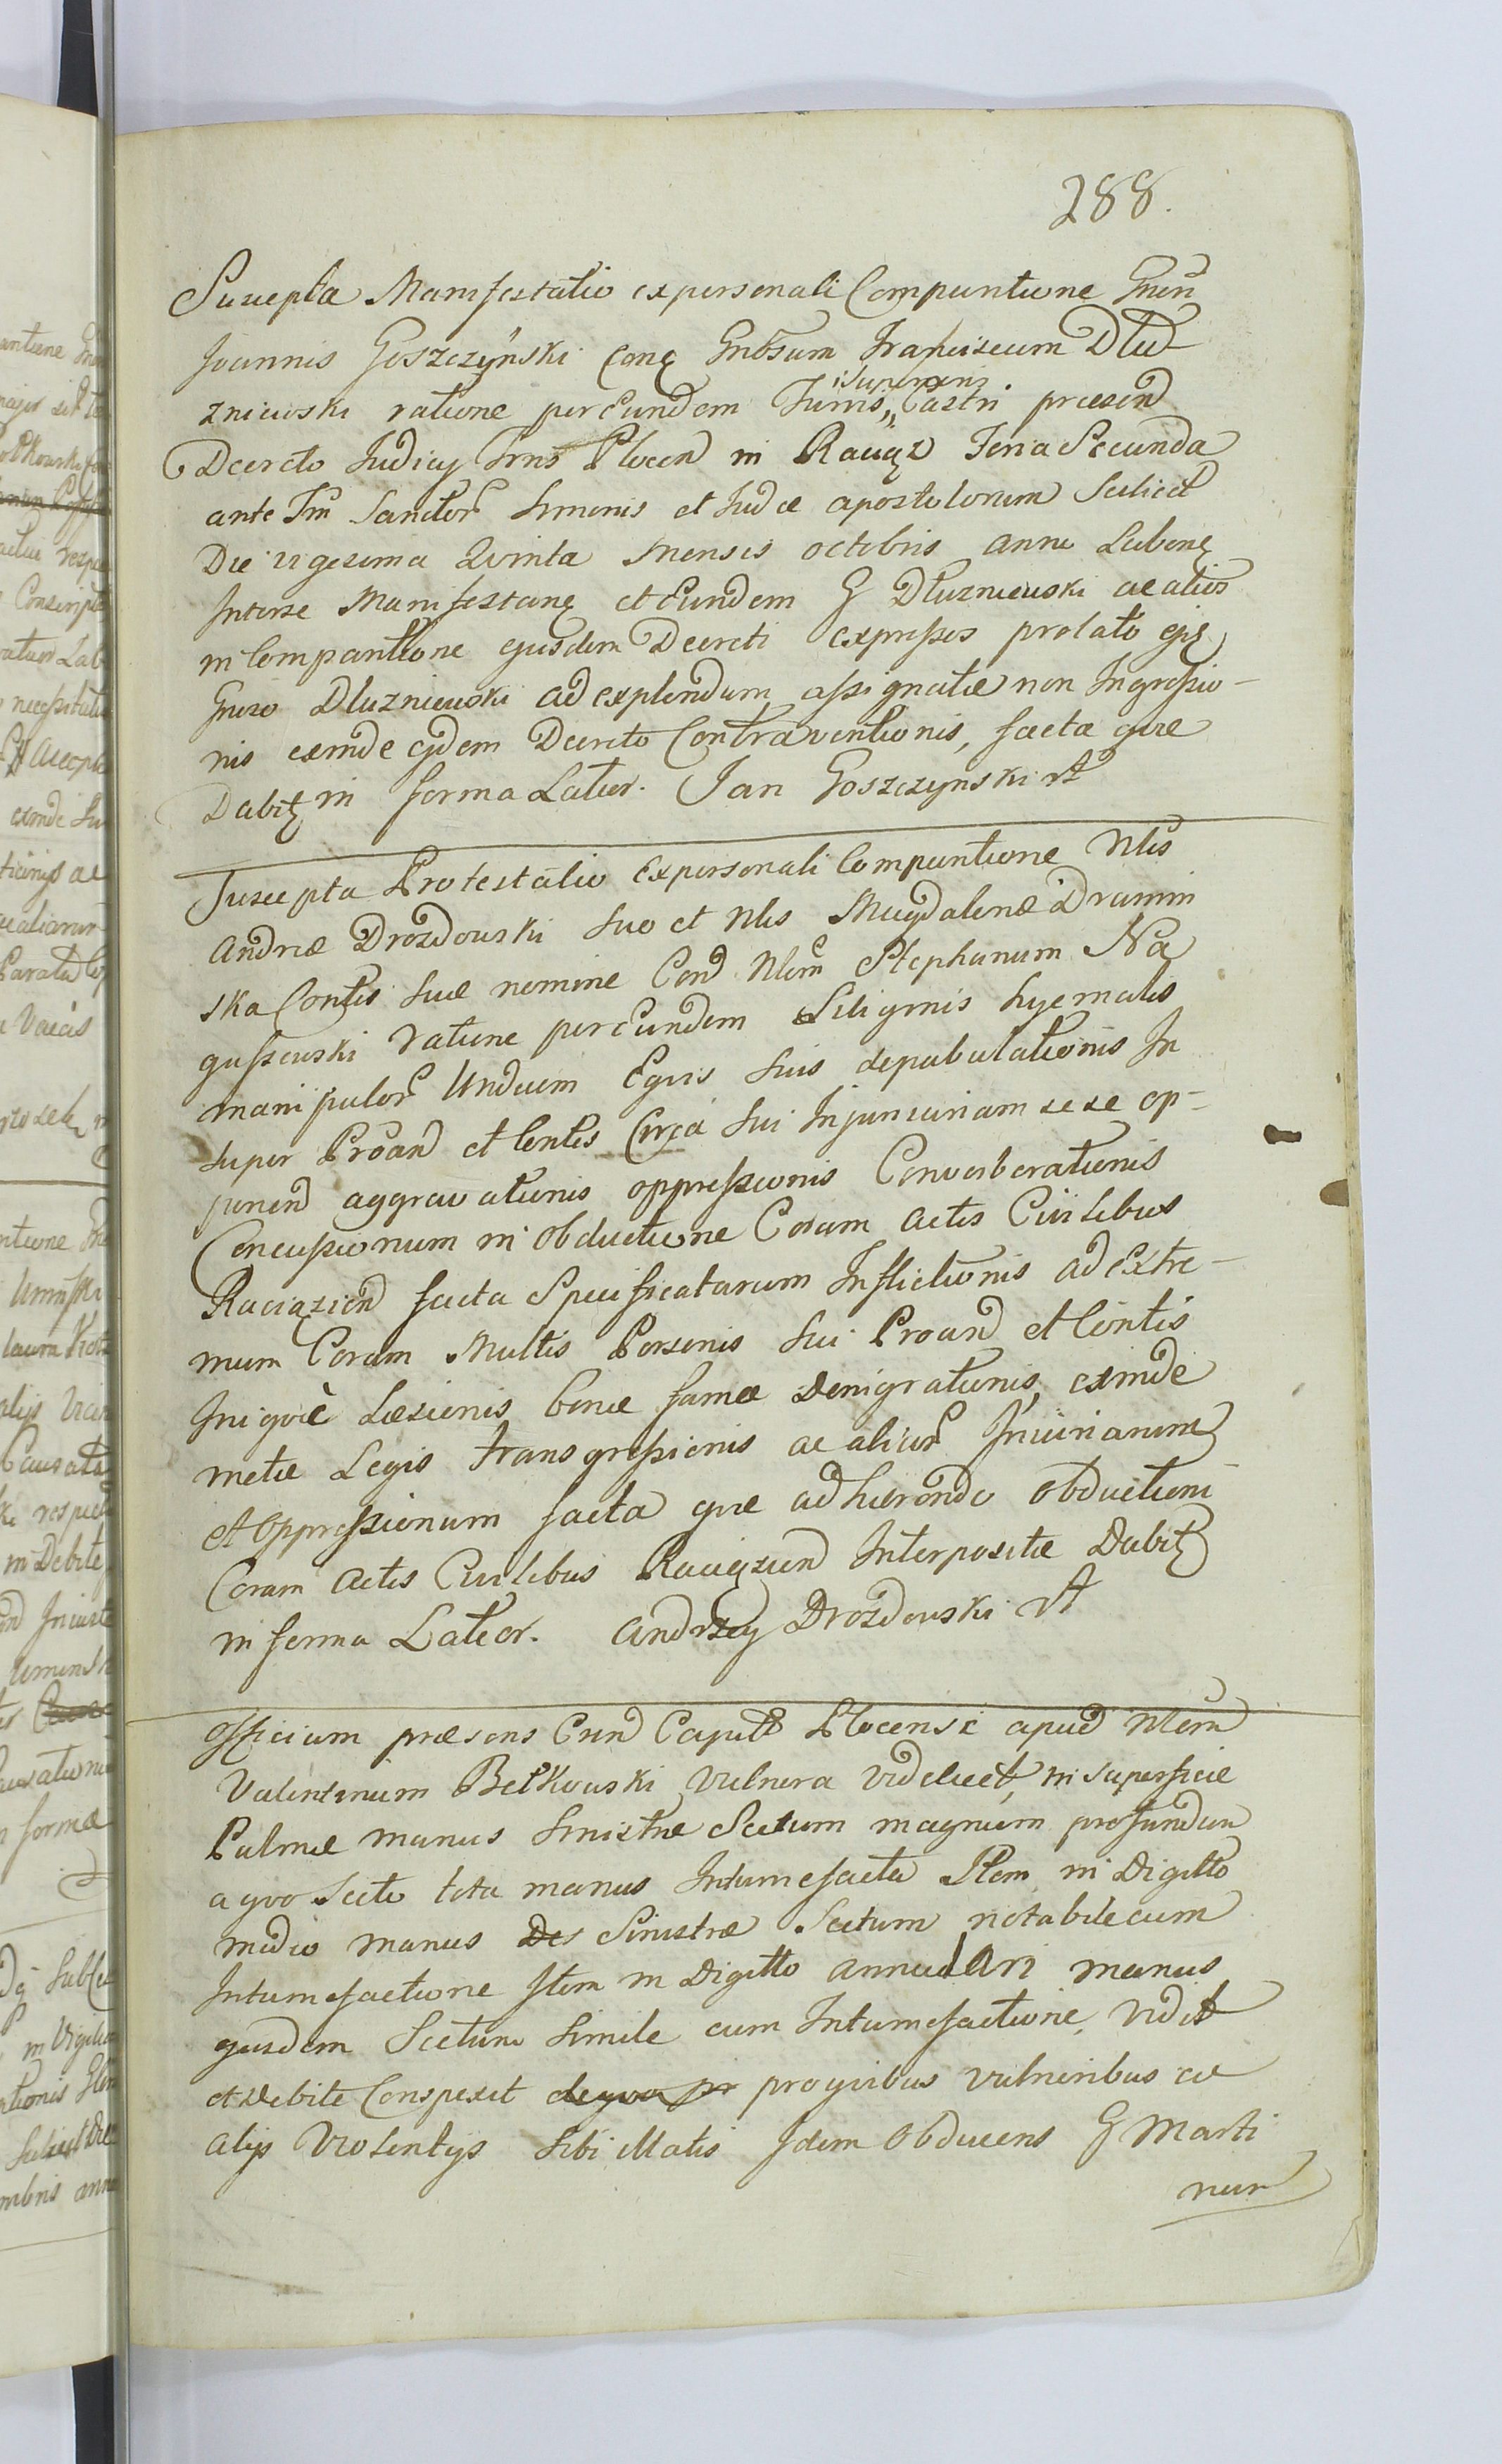 288.
Suscepta Manifestatio ex personali Comparitione Gneri
Joannis Goszczynski Conę Gnbsum Franciscum Dłu
zniewski ratione per Eundem Turris, Castri præsend
Superioris
Decreto Judicij Trns Plocen in Raciąz Feria Secunda
ante Fm Sanctor Simonis et Judæ apostolorum Scilicet
Die vigesima Qvinta Mensis octobris anni Labenę
Interse Manifestanę et Eundem G Dłuzniewski ac alios
in Comparitione ejusdem Decreti expressos prolato ejs
Gnero Dłuzniewski ad explendum assignatæ non Ingressio-
nis exinde ejdem Decreto Contraventionis, facta qvæ
Dabitę in forma Latior. Jan Goszczynski
Suscepta Protestatio Ex personali Comparitione Nlis
Andreæ Drozdowski suo et Nlis Magdalenæ Dramin
ska Contis suæ nomine Cond Nlem Stephanum Na
guszewski ratione per Eundem Siliginis hyemalis
manipulor Undecim Eqvis suis depabulationis In
super Proand et Contis Circa sui Injuncuriam sese op-
ponend aggravationis oppressionis Converberationis
Concussionum in obductione Coram actis Civilibus
Raciązien facta Specificatarum Inflictionis ad extre-
mum Coram Multis Personis sui Proand et Contis
Iniqvè Læsionis bonæ famæ Denigrationis, exinde
metæ Legis transgressionis ac alior Injuriarum
et oppressionum facta qvæ adhærendo obductioni
Coram actis Civilibus Raciązien Interpositæ Dabitę
in forma Latior. Andrzey Drozdowski
Officium præsens Cnd Capitt Plocense apud Nlem
Valentinum Betkowski Vulnera videlicet, in superficie
Palmæ manus sinistræ Sectum magnum profundum
a qvo Secto tota manus Intumefacta Item in Digitto
medio manus Des Sinistræ Sectum notabile cum
Intumefactione Item in Digitto annulari manus
ejusdem Sectum simile cum Intumefactione, vidit
et Debite Conspexit de qva pr pro qvibus vulneribus ac
alijs violentijs sibi illatis Idem obducens G Marti
num